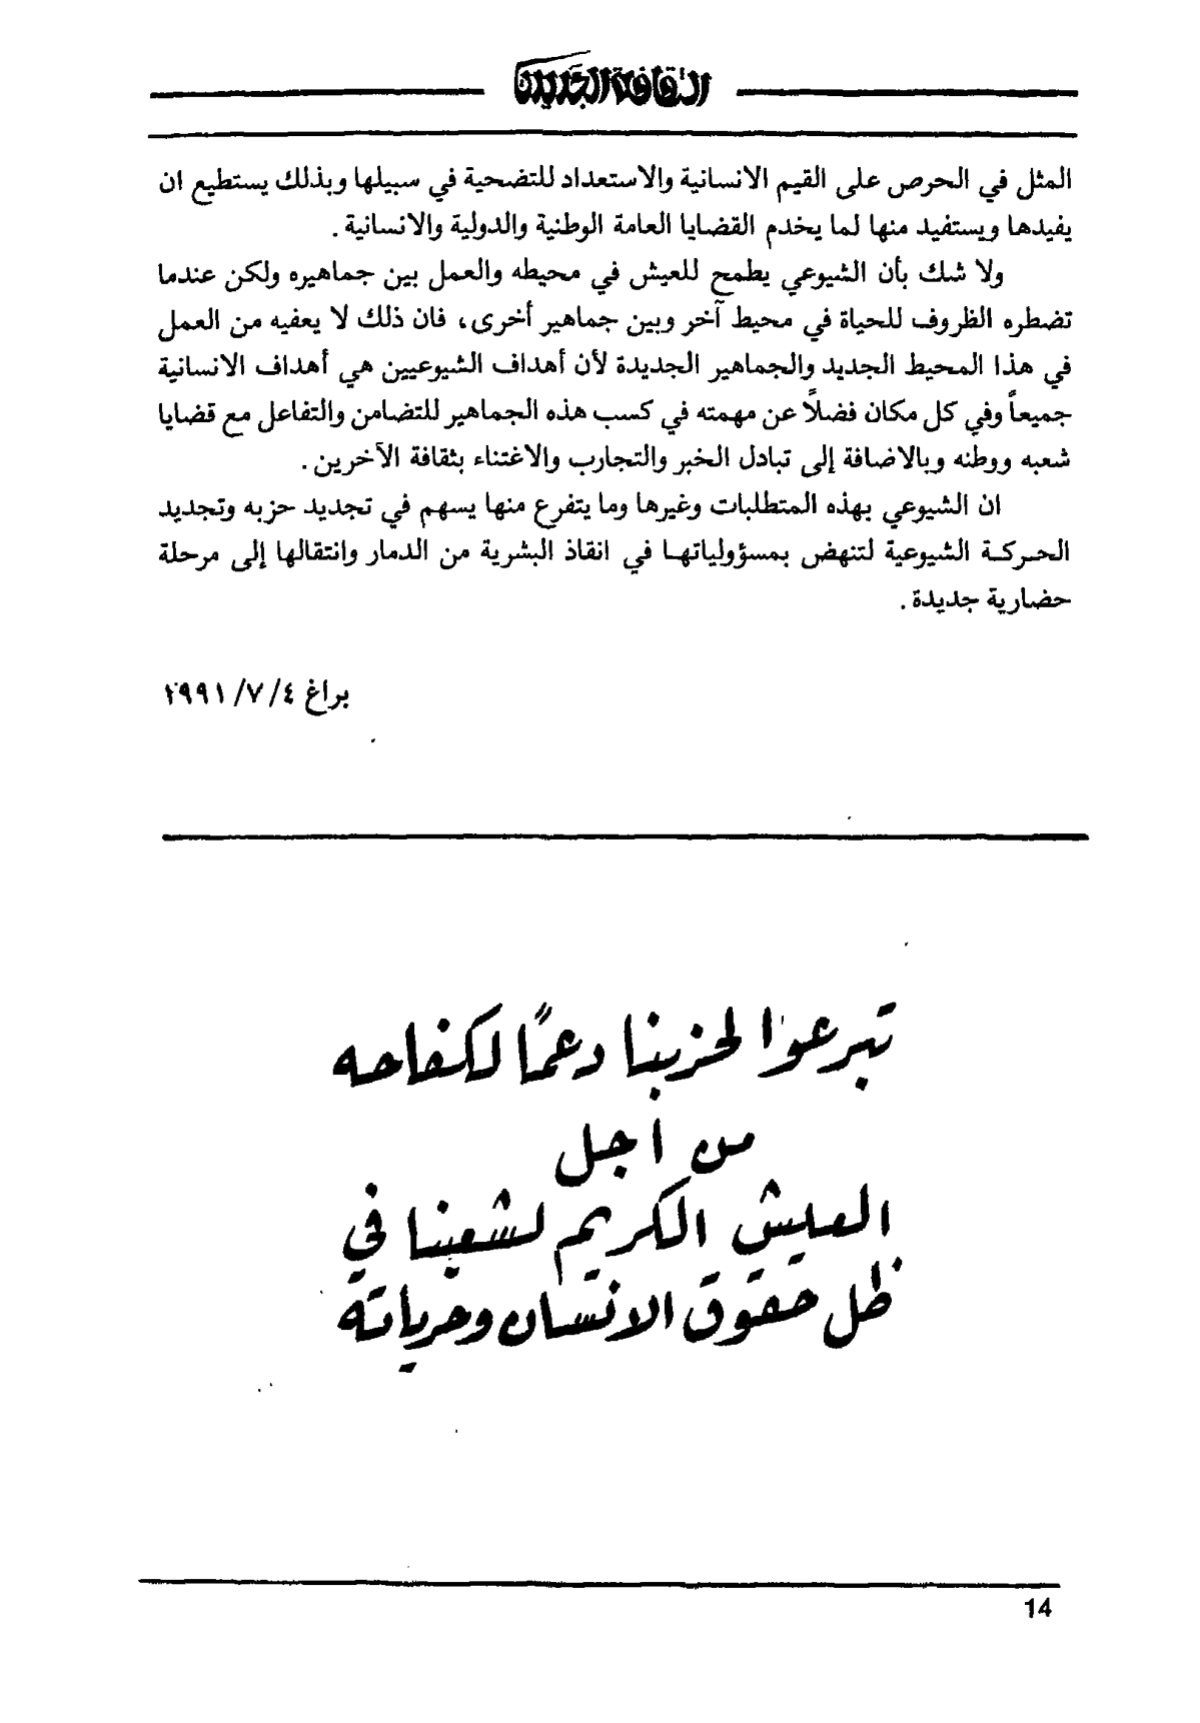 الثقافة الجديدة
المثل في الحرص على القيم الانسانية والاستعداد للتضحية في سبيلها وبذلك يستطيع ان
يفيدها ويستفيد منها لما يخدم القضايا العامة الوطنية والدولية والانسانية .
ولا شك بأن الشيوعي يطمح للعيش في محيطه والعمل بين جماهيره ولكن عندما
تضطره الظروف للحياة في محيط آخر وبين جماهير أخرى، فان ذلك لا يعفيه من العمل
في هذا المحيط الجديد والجماهير الجديدة لأن أهداف الشيوعيين هي أهداف الانسانية
جميعاً وفي كل مكان فضلاً عن مهمته في كسب هذه الجماهير للتضامن والتفاعل مع قضايا
شعبه ووطنه وبالاضافة إلى تبادل الخبر والتجارب والاغتناء بثقافة الآخرين .
ان الشيوعي بهذه المتطلبات وغيرها وما يتفرع منها يسهم في تجديد حزبه وتجديد
الحركة الشيوعية لتنهض بمسؤولياتها في انقاذ البشرية من الدمار وانتقالها إلى مرحلة
حضارية جديدة .
براغ ٤/ ٧/ ١٩٩١
تبرعوا لحزبنا دعمًا لكفاحه
من أجل
العيش الكريم لشعبنا في
ظل حقوق الانسان وحرياته
14